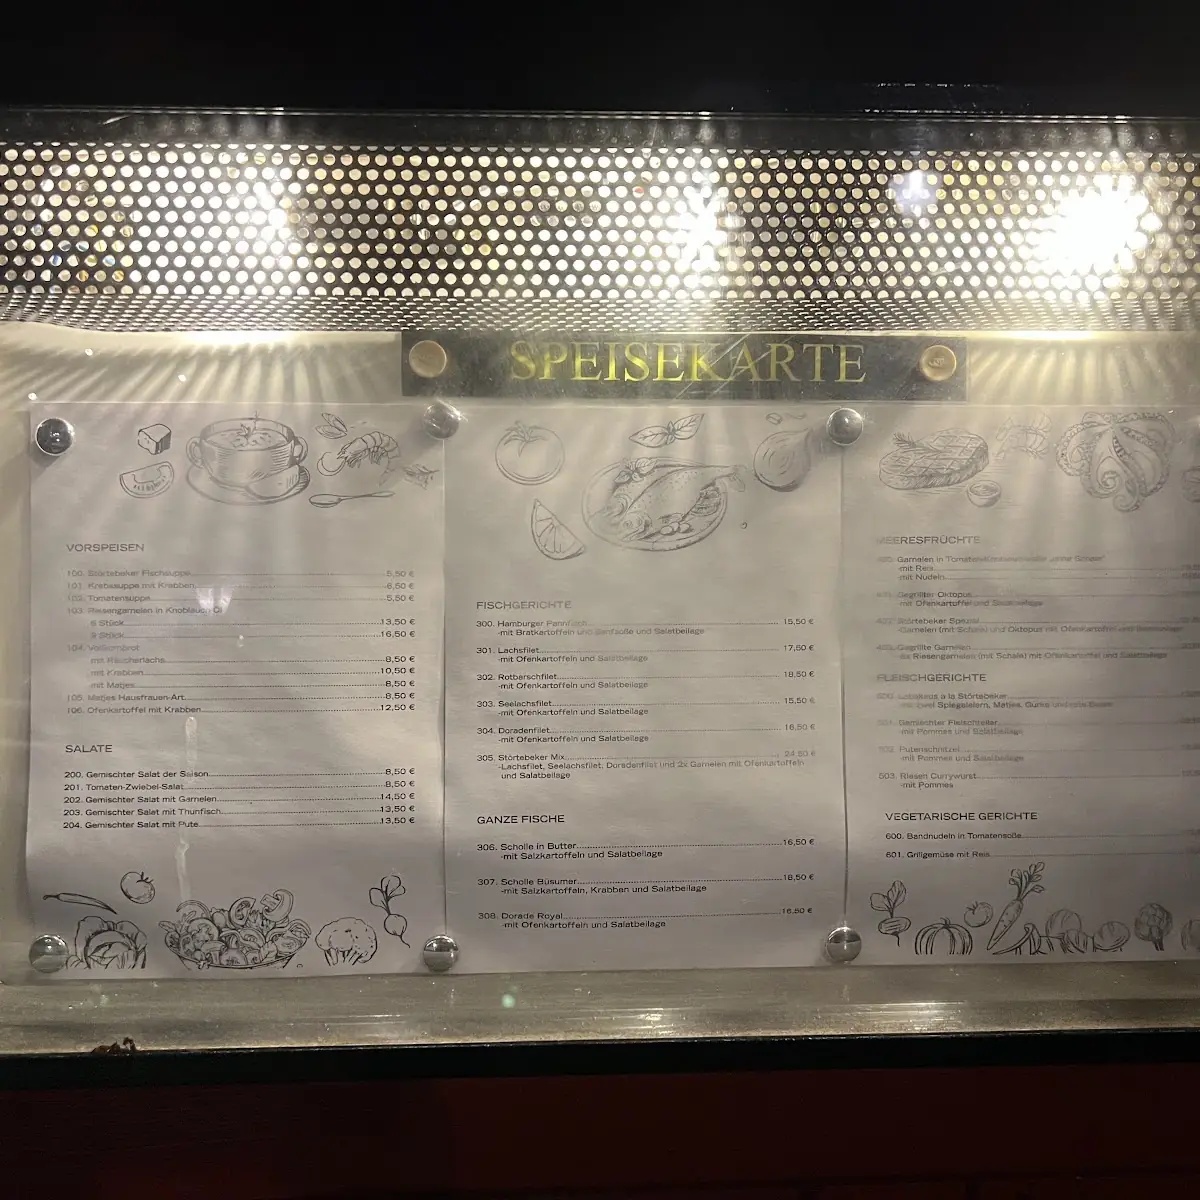 SPEISEKARTE
VORSPEISEN
100. Störtebeker Fischsuppe 5,50 €
101. Krebssuppe mit Krabben 6,50 €
102. Tomatensuppe 5,50 €
103. Riesengarnelen in Knoblauch-Öl
6 Stück 13,50 €
9 Stück 16,50 €
104. Vollkornbrot
mit Räucherlachs 8,50 €
mit Krabben 10,50 €
mit Matjes 8,50 €
105. Matjes Hausfrauen-Art 8,50 €
106. Ofenkartoffel mit Krabben 12,50 €
SALATE
200. Gemischter Salat der Saison 8,50 €
201. Tomaten-Zwiebel-Salat 8,50 €
202. Gemischter Salat mit Garnelen 14,50 €
203. Gemischter Salat mit Thunfisch 13,50 €
204. Gemischter Salat mit Pute 13,50 €
FISCHGERICHTE
300. Hamburger Pannfisch 15,50 €
-mit Bratkartoffeln und Senfsoße und Salatbeilage
301. Lachsfilet 17,50 €
-mit Ofenkartoffeln und Salatbeilage
302. Rotbarschfilet 18,50 €
-mit Ofenkartoffeln und Salatbeilage
303. Seelachsfilet 15,50 €
-mit Ofenkartoffeln und Salatbeilage
304. Doradenfilet 16,50 €
-mit Ofenkartoffeln und Salatbeilage
305. Störtebeker Mix 24,50 €
-Lachsfilet, Seelachsfilet, Doradenfilet und 2x Garnelen mit Ofenkartoffeln
und Salatbeilage
GANZE FISCHE
306. Scholle in Butter 16,50 €
-mit Salzkartoffeln und Salatbeilage
307. Scholle Büsumer 18,50 €
-mit Salzkartoffeln, Krabben und Salatbeilage
308. Dorade Royal 16,50 €
-mit Ofenkartoffeln und Salatbeilage
MEERESFRÜCHTE
400. Garnelen in
-mit Reis
-mit Nudeln
401. Gegrillter Oktopus
-mit Ofenkartoffel und Salatbeilage
402. Störtebeker Spezial
-Garnelen (mit Schale) und Oktopus mit Ofenkartoffeln und Salatbeilage
403. Gegrillte Garnelen
Riesengarnelen (mit Schale) mit Ofenkartoffel und Salatbeilage
FLEISCHGERICHTE
500. Labskaus a la Störtebeker
-mit zwei Spiegeleiern, Matjes, Gurke und
501. Gemischter Fleischteller
-mit Pommes und Salatbeilage
502. Putenschnitzel
-mit Pommes und Salatbeilage
503. Riesen Currywurst
-mit Pommes
VEGETARISCHE GERICHTE
600. Bandnudeln in Tomatensoße
601. Grillgemüse mit Reis